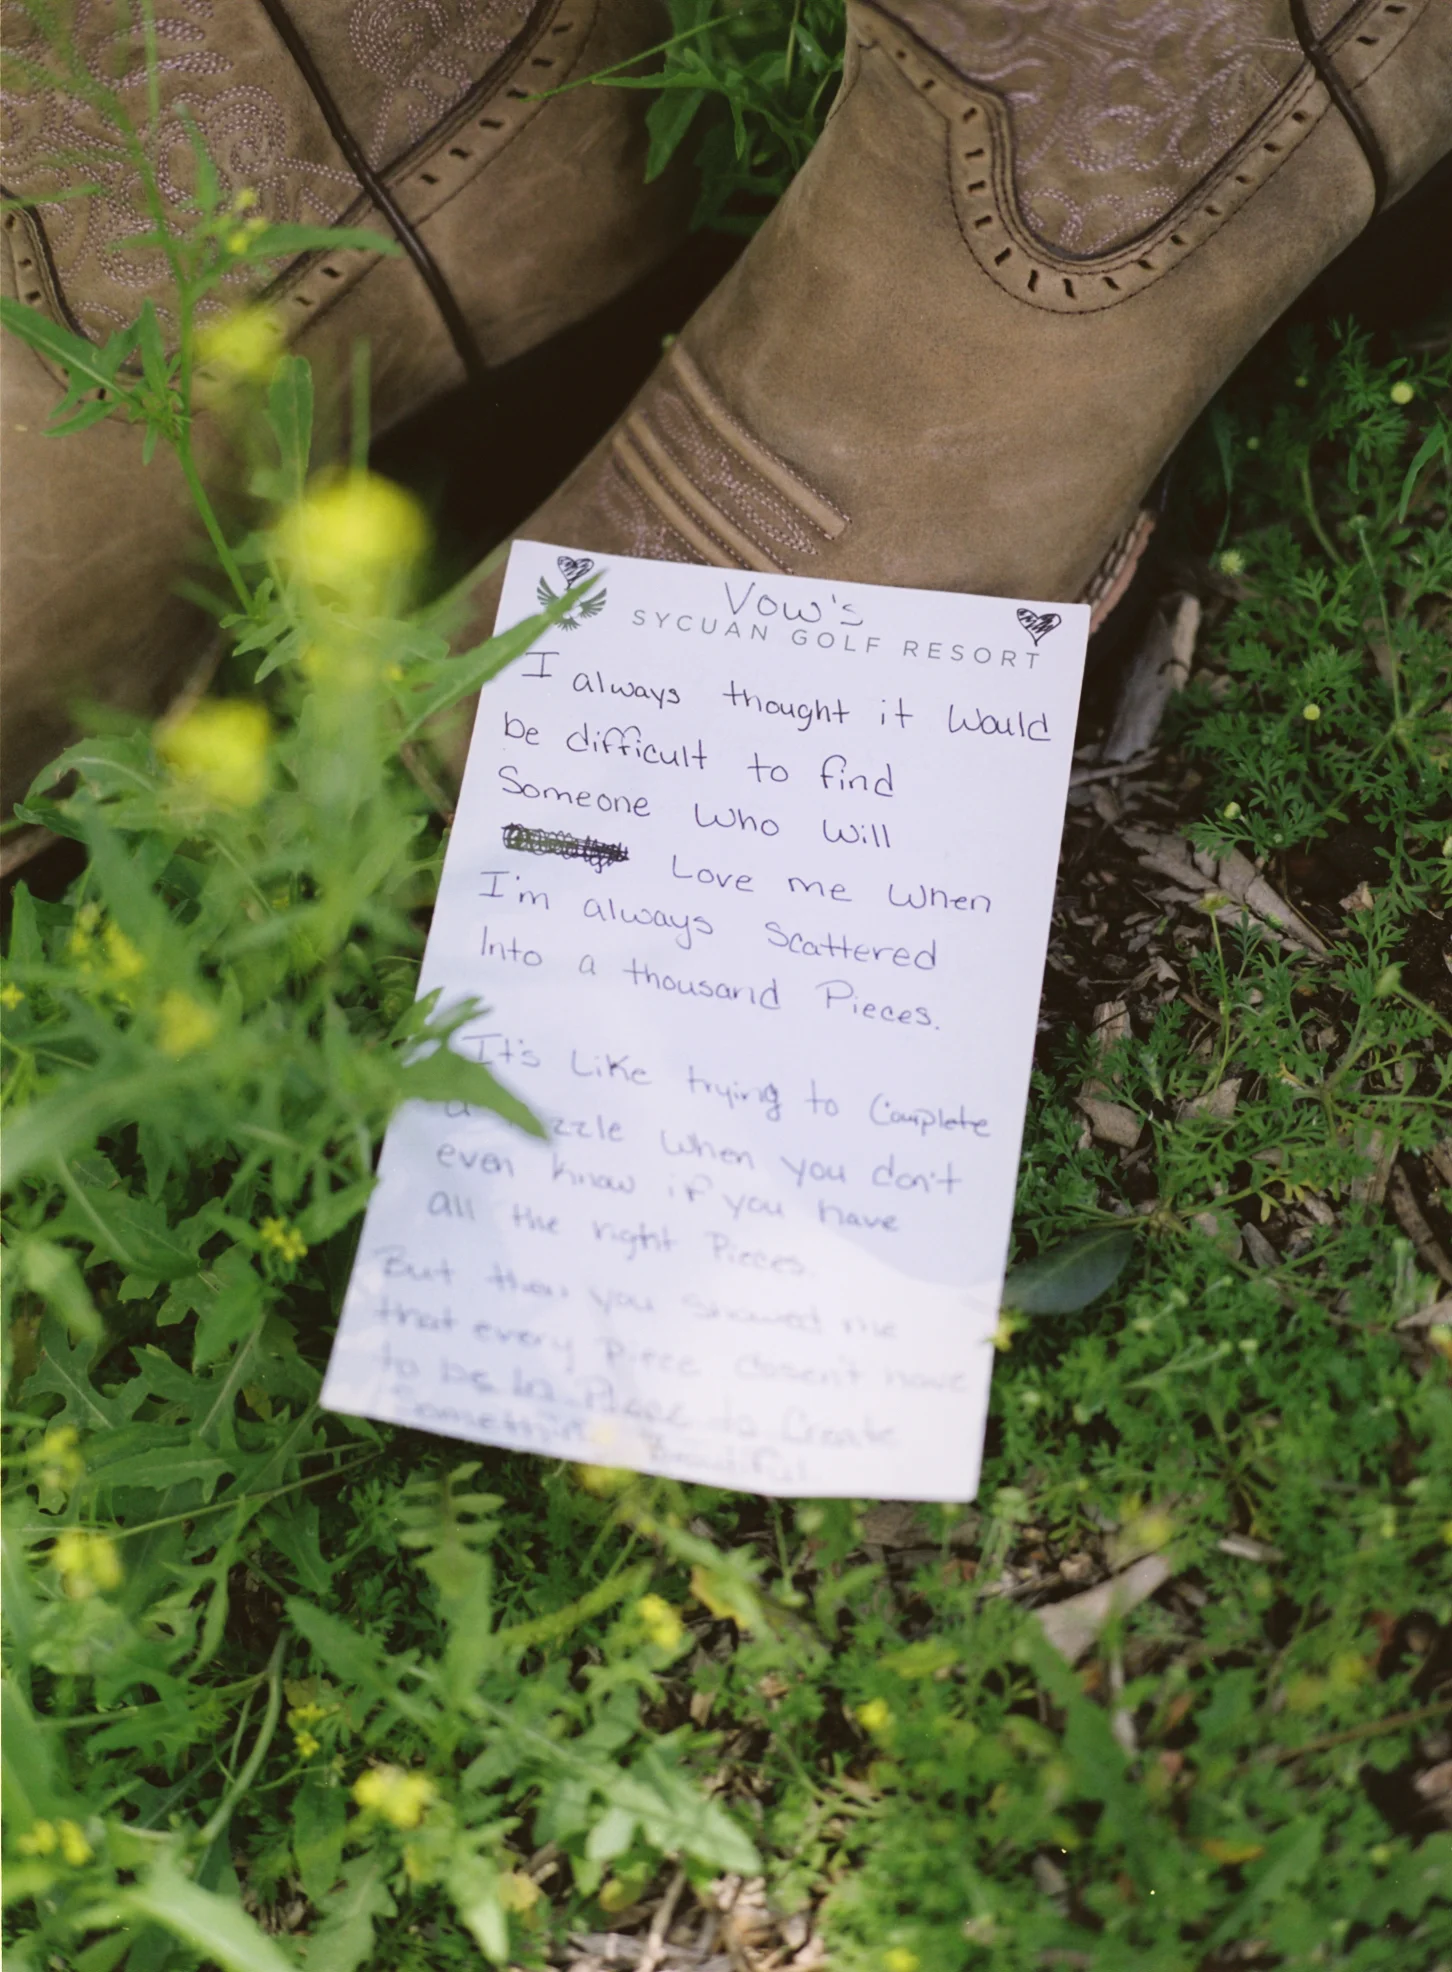 Vow's
SYCUAN GOLF RESORT
I always thought it would
be difficult to find
Someone who will
Love me when
I'm always Scattered
Into a thousand Pieces.
It's Like trying to Complete
a zzle when you don't
even know if you have
all the right Pieces
But then you showed me
that every piece doesn't have
to be In Place to Create
Something Beautiful